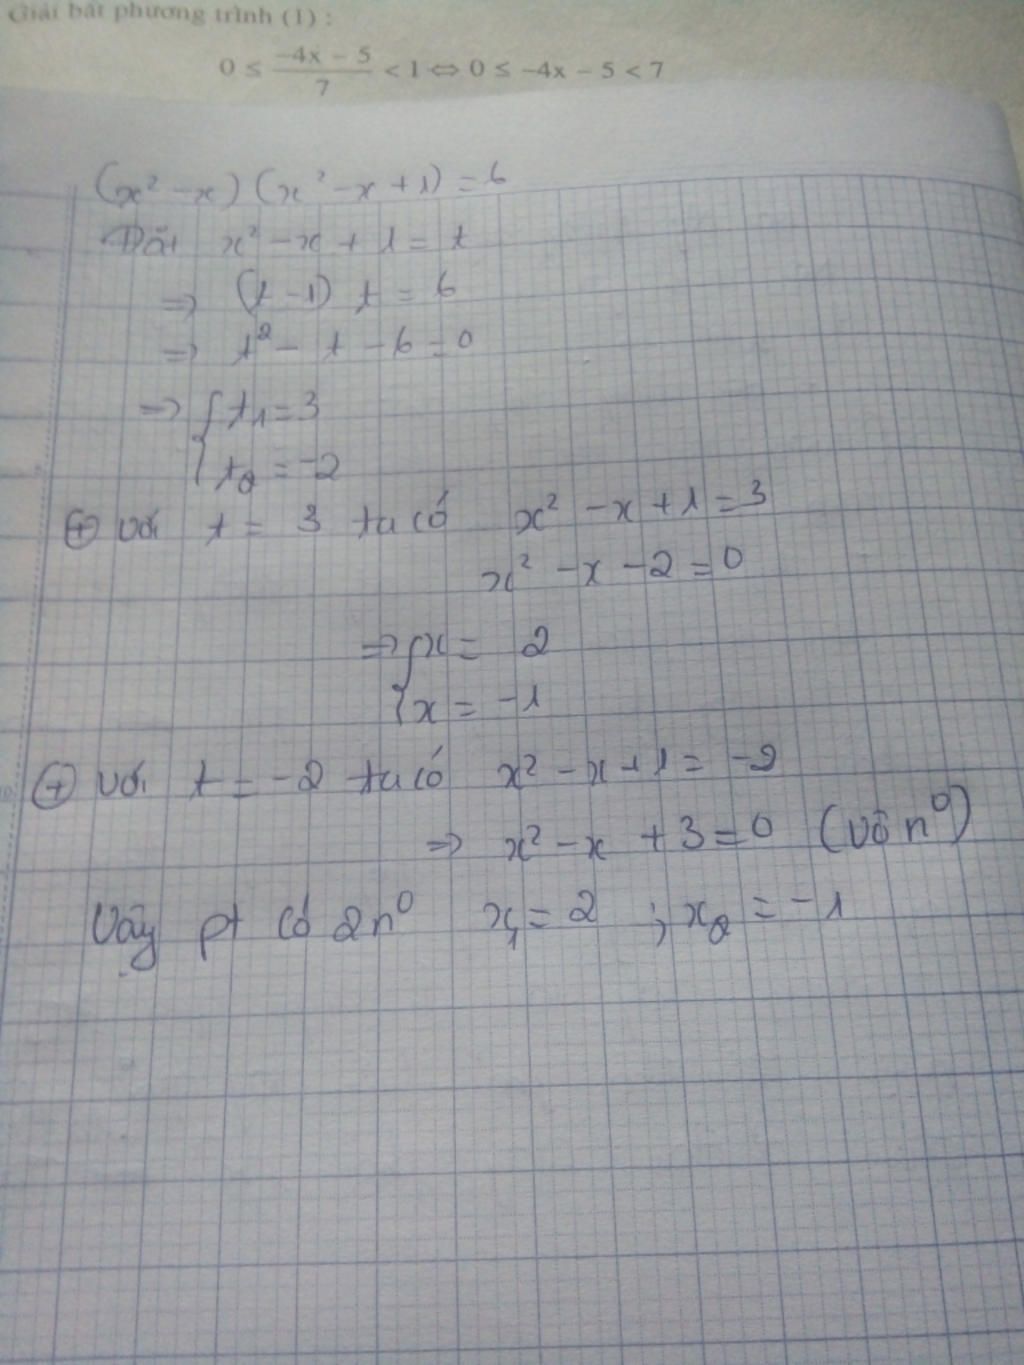 Giải bất phương trình (1) :
0 ≤ (−4x − 5)/7 < 1 ⇔ 0 ≤ −4x − 5 < 7
(x² − x) (x² − x + 1) = 6
Đặt x² − x + 1 = t
⇒ (t − 1) t = 6
⇒ t² − t − 6 = 0
⇒ { t₁ = 3
{ t₂ = −2
⊕ với t = 3 ta có x² − x + 1 = 3
x² − x − 2 = 0
⇒ { x = 2
{ x = −1
⊕ với t = −2 ta có x² − x + 1 = −2
⇒ x² − x + 3 = 0 (vô n⁰)
Vậy pt có 2n⁰ x₁ = 2 ; x₂ = −1